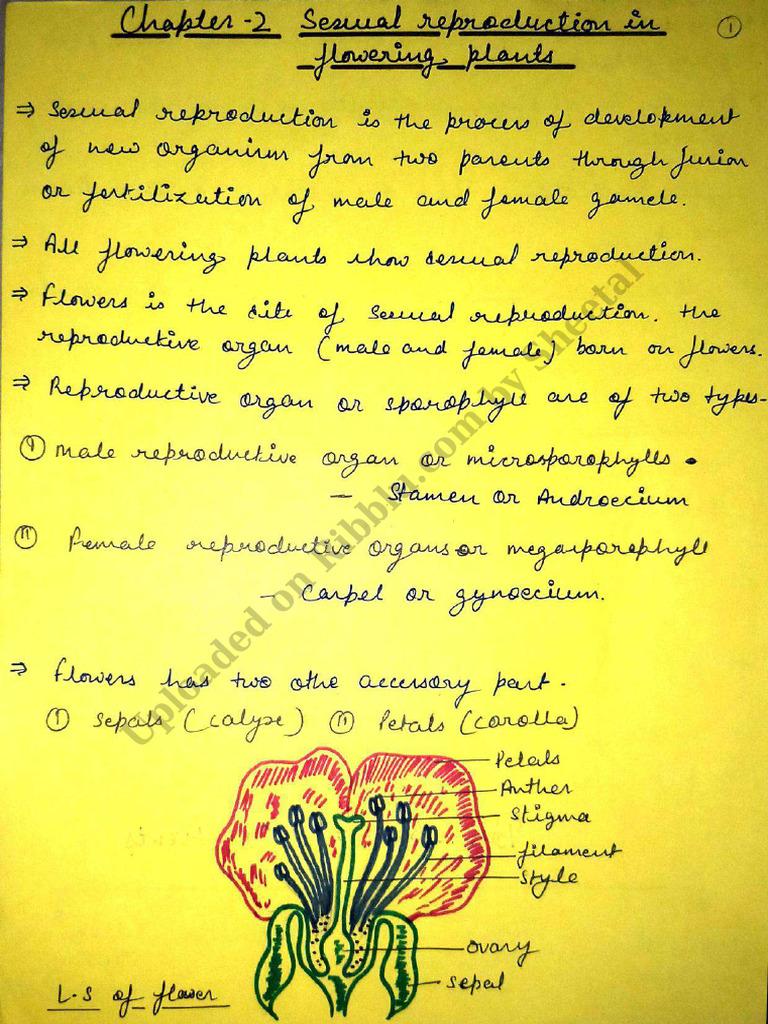 Chapter-2 Sexual reproduction in
flowering plants
1
⇒ Sexual reproduction is the process of development
of new organism from two parents through fusion
or fertilization of male and female gamete.
⇒ All flowering plants show sexual reproduction.
⇒ Flowers is the site of sexual reproduction. the
reproductive organ (male and female) born on flowers.
⇒ Reproductive organ or sporophyll are of two types-
I male reproductive organ or microsporophylls.
- Stamen or Androecium
II Female reproductive organs or megasporophyll
- Carpel or gynoecium.
⇒ flowers has two othe accessory part.
I Sepals (calyx) II Petals (corolla)
Petals
Anther
Stigma
filament
Style
ovary
Sepal
L.S of flower
Uploaded on Ribblu.com by Sheetal